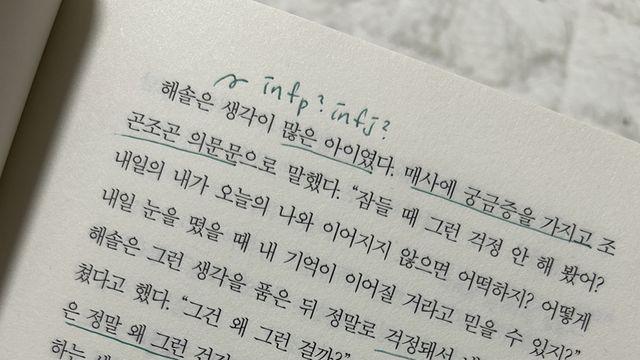 infp? infj?
해솔은 생각이 많은 아이였다. 매사에 궁금증을 가지고 조
곤조곤 의문문으로 말했다. “잠들 때 그런 걱정 안 해 봤어?
내일의 내가 오늘의 나와 이어지지 않으면 어떡하지? 어떻게
내일 눈을 떴을 때 내 기억이 이어질 거라고 믿을 수 있지?”
해솔은 그런 생각을 품은 뒤 정말로 걱정돼서
쳤다고 했다. “그건 왜 그런 걸까?”
은 정말 왜 그런
하는